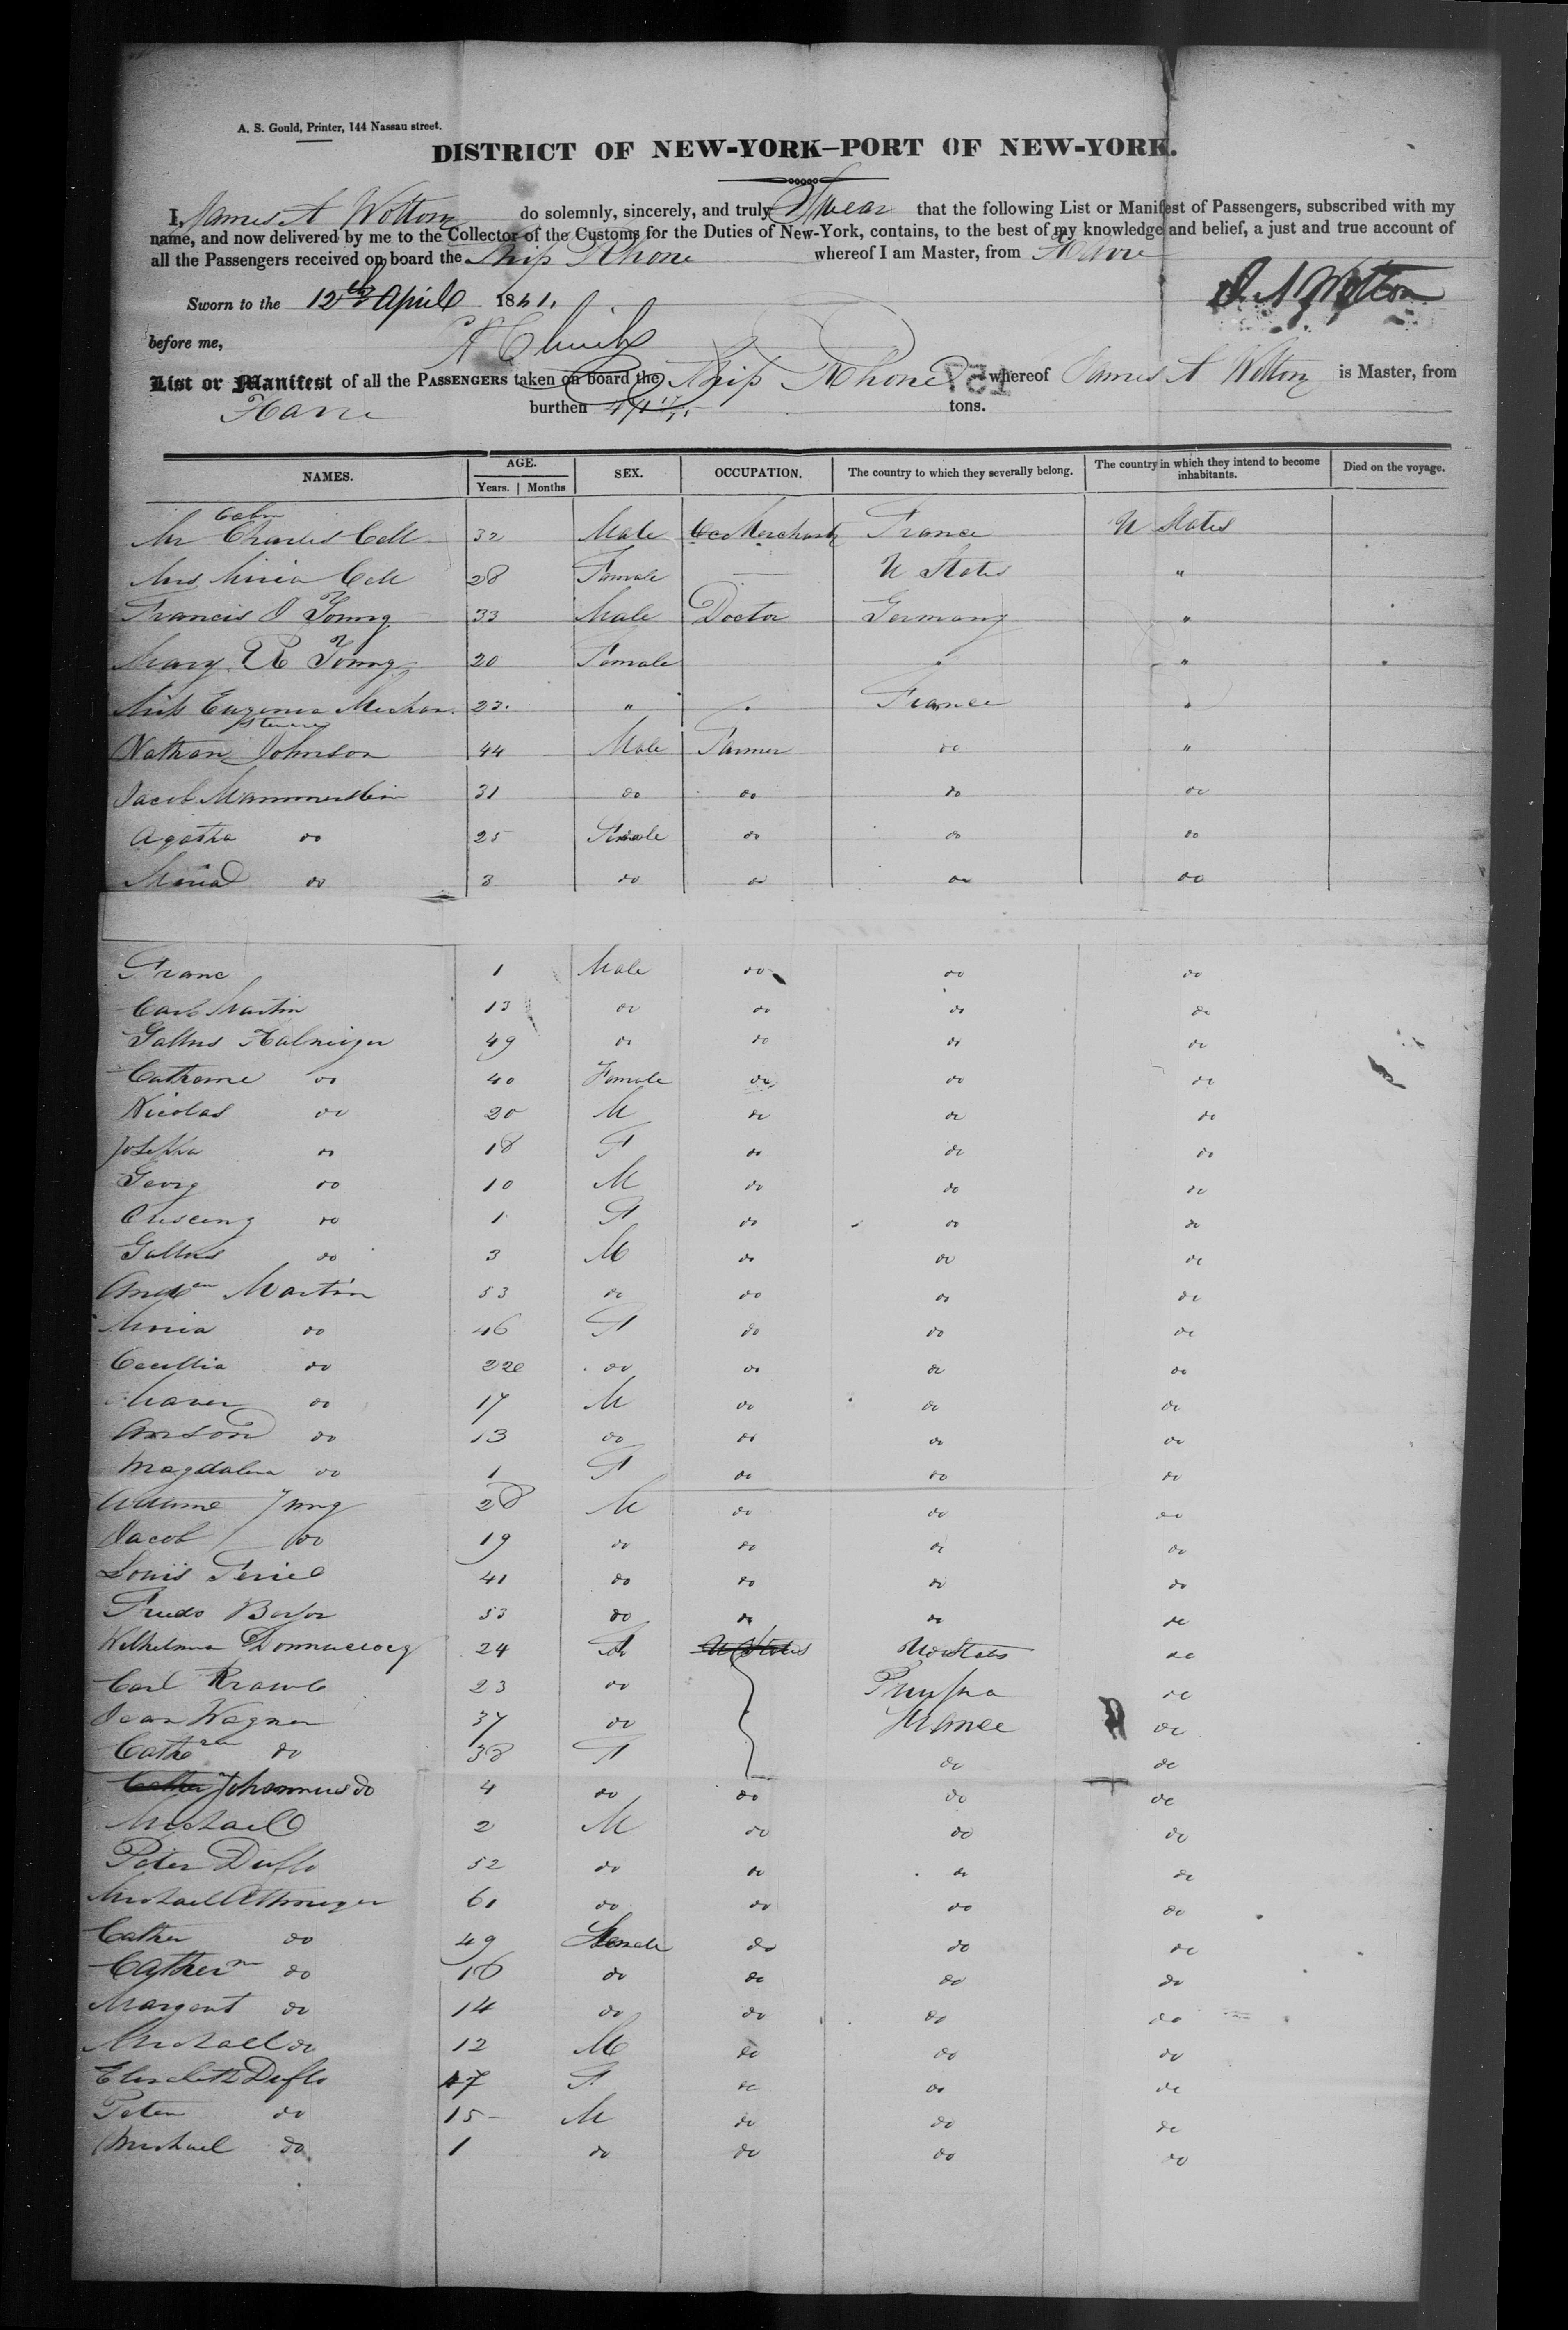 A. S. Gould, Printer, 144 Nassau street.
DISTRICT OF NEW-YORK–PORT OF NEW-YORK.
I, James A Wotton do solemnly, sincerely, and truly Swear that the following List or Manifest of Passengers, subscribed with my
name, and now delivered by me to the Collector of the Customs for the Duties of New-York, contains, to the best of my knowledge and belief, a just and true account of
all the Passengers received on board the Ship Rhone whereof I am Master, from Havre
Sworn to the 12th April 1841. J. A Wotton
before me,
List or Manifest of all the PASSENGERS taken on board the Ship Rhone whereof James A Wotton is Master, from
Havre burthen tons.
NAMES. AGE. SEX. OCCUPATION. The country to which they severally belong. The country in which they intend to become inhabitants. Died on the voyage.
Years. Months
Mr Charles 32 Male Merchant France U States
Mrs Maria 28 Female — U States "
Francis J Young 33 Male Doctor Germany "
Mary R Young 20 Female " "
Miss Eugenia 23. " " France "
Nathan Johnson 44 Male Farmer do "
Jacob 31 do do do do
Agatha do 25 Female do do do
Maria do 3 do do do do
Franc 1 Male do do do
Carl Martin 13 do do do do
Gallus 49 do do do do
Catherine do 40 Female do do do
Nicolas do 20 M do do do
Josepha do 18 F do do do
Georg do 10 M do do do
do 1 F do do do
Gallus do 3 M do do do
Martin 53 do do do do
Maria do 46 F do do do
Cecillia do 22 do do do do
do 17 M do do do
Anton do 13 do do do do
Magdalena do 1 F do do do
Jung 28 M do do do
Jacob do 19 do do do do
Louis 41 do do do do
53 do do do do
Wilhelmina 24 F U States U States do
Carl 23 do Prussia do
Jean Wagner 37 do France do
Cathe do 38 F do do
Johannus do 4 do do do do
Michael 2 M do do do
Peter Duflo 52 do do do do
Michael 61 do do do do
Cather do 49 Female do do do
Cather do 16 do do do do
Margaret do 14 do do do do
Michael do 12 M do do do
Elisabeth Duflo 47 F do do do
Peter do 15 M do do do
Michael do 1 do do do do